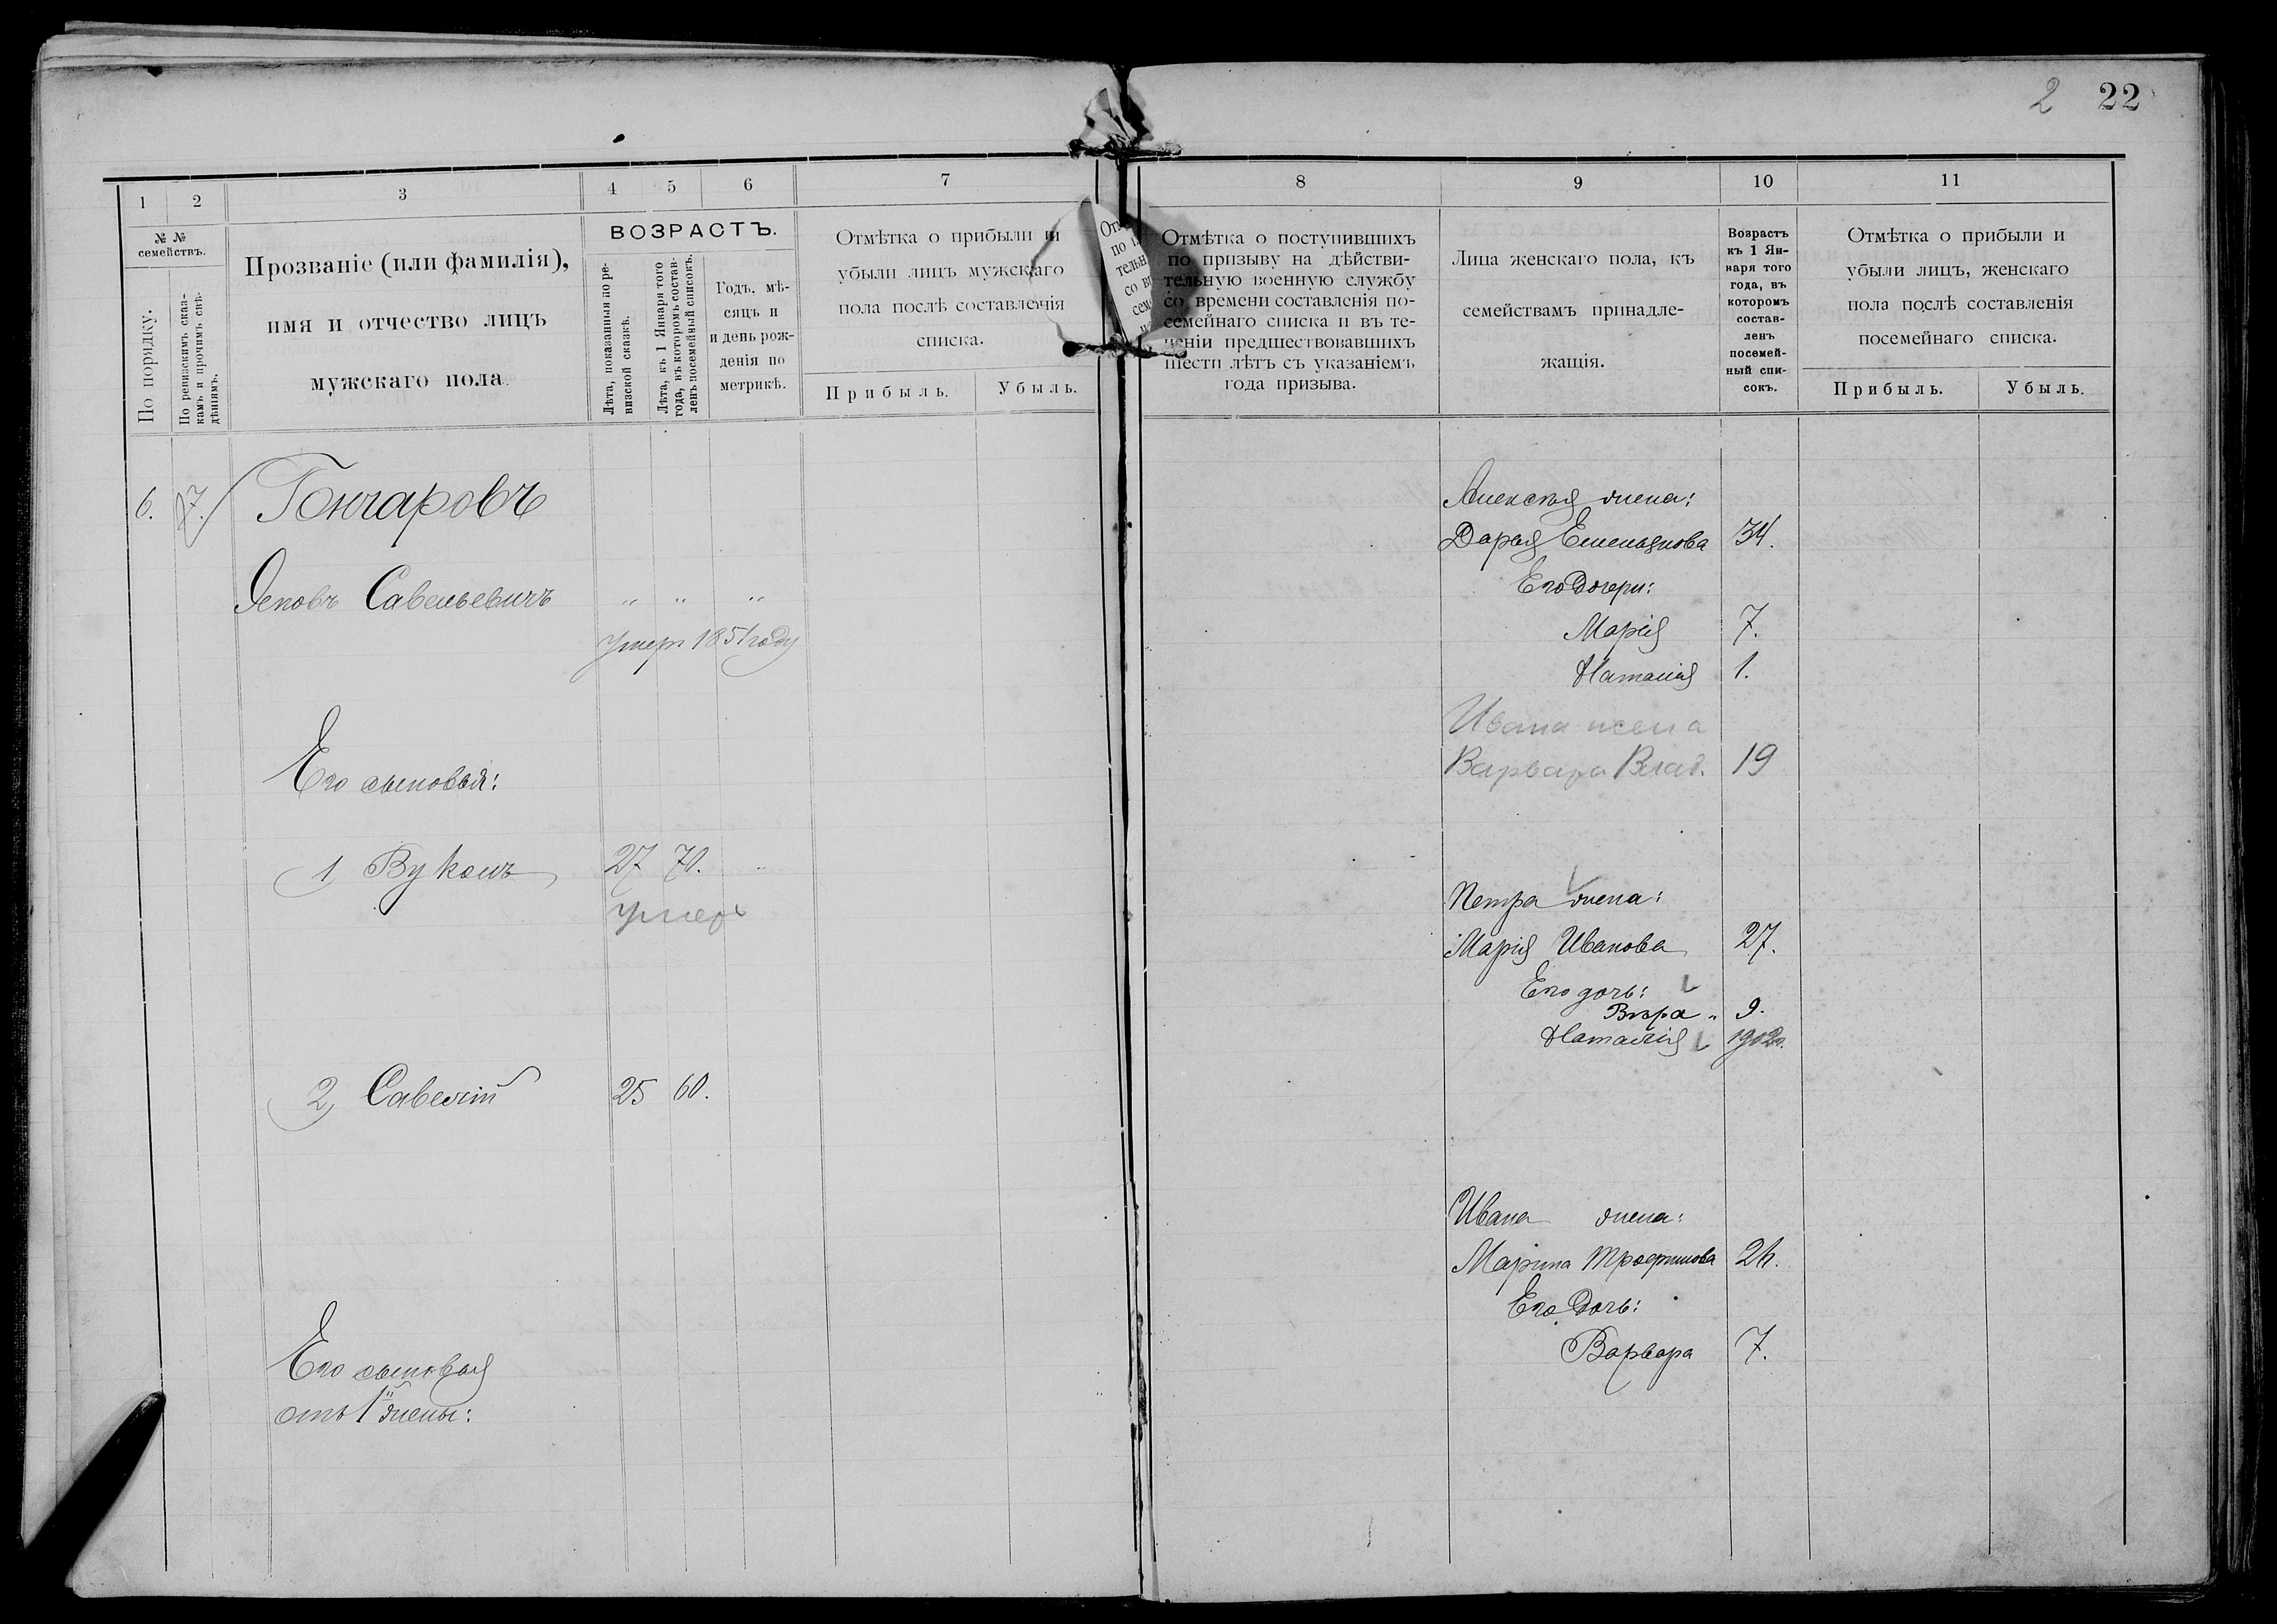 2 22
1 2 3 4 5 6 7
№ №
семействъ.
По порядку.
По ревизскимъ сказ-
камъ и прочимъ свѣ-
дѣніямъ.
Прозваніе (или фамилія),
имя и отчество лицъ
мужскаго пола.
ВОЗРАСТЪ.
Лѣта, показанныя по ре-
визской сказкѣ.
Лѣта, къ 1 Января того
года, въ которомъ состав-
ленъ посемейный списокъ.
Годъ, мѣ-
сяцъ и
и день рож-
денія по
метрикѣ.
Отмѣтка о прибыли и
убыли лицъ мужскаго
пола послѣ составленія
списка.
Прибыль. Убыль.
6. 7. Гончаровъ
Яковъ Савельевичъ " " "
умеръ 1851 году
Его сыновья:
1, Вуколъ 27 70. "
умеръ
2, Савелій 25 60.
Его сыновья
отъ 1й жены:
8 9 10 11
Отмѣтка о поступившихъ
по призыву на дѣйстви-
тельную военную службу
со времени составленія по-
семейнаго списка и въ те-
ченіи предшествовавшихъ
шести лѣтъ съ указаніемъ
года призыва.
Лица женскаго пола, къ
семействамъ принадле-
жащія.
Возрастъ
къ 1 Ян-
варя того
года, въ
которомъ
состав-
ленъ
посемей-
ный спи-
сокъ.
Отмѣтка о прибыли и
убыли лицъ, женскаго
пола послѣ составленія
посемейнаго списка.
Прибыль. Убыль.
Алексѣя жена:
Дарья Емельянова 34.
Его дочери:
Марія 7.
Наталія 1.
Ивана жена
Варвара Влад. 19
Петра жена:
Марія Иванова 27.
Его дочь:
Вѣра " 9.
Наталія 1902г.
Ивана жена:
Марина Трофимова 26.
Его дочь:
Варвара 7.